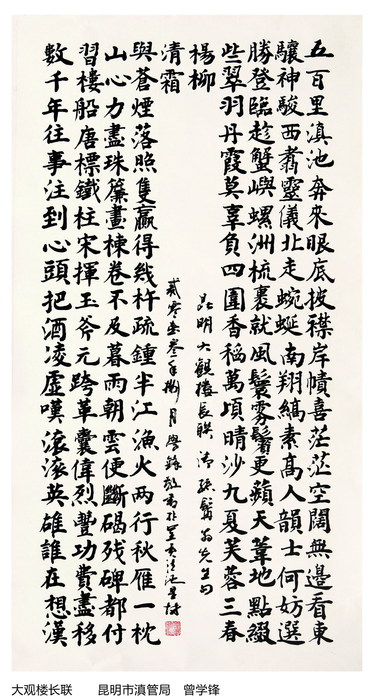 五百里滇池奔來眼底披襟岸幘喜茫茫空闊無邊看東
驤神駿西翥靈儀北走蜿蜒南翔縞素高人韻士何妨選
勝登臨趁蟹嶼螺洲梳裹就風鬟霧鬢更蘋天葦地點綴
些翠羽丹霞莫辜負四圍香稻萬頃晴沙九夏芙蓉三春
楊柳
昆明大觀樓長联清孫髯翁先生句
數千年往事注到心頭把酒凌虛嘆滾滾英雄誰在想漢
習樓船唐標鐵柱宋揮玉斧元跨革囊偉烈豐功費盡移
山心力盡珠簾畫棟卷不及暮雨朝雲便斷碣残碑都付
與蒼煙落照隻贏得幾杵疏鍾半江漁火两行秋雁一枕
清霜
贰零壹叁年捌月學鋒敬書於
大观楼长联 昆明市滇管局 曾学锋